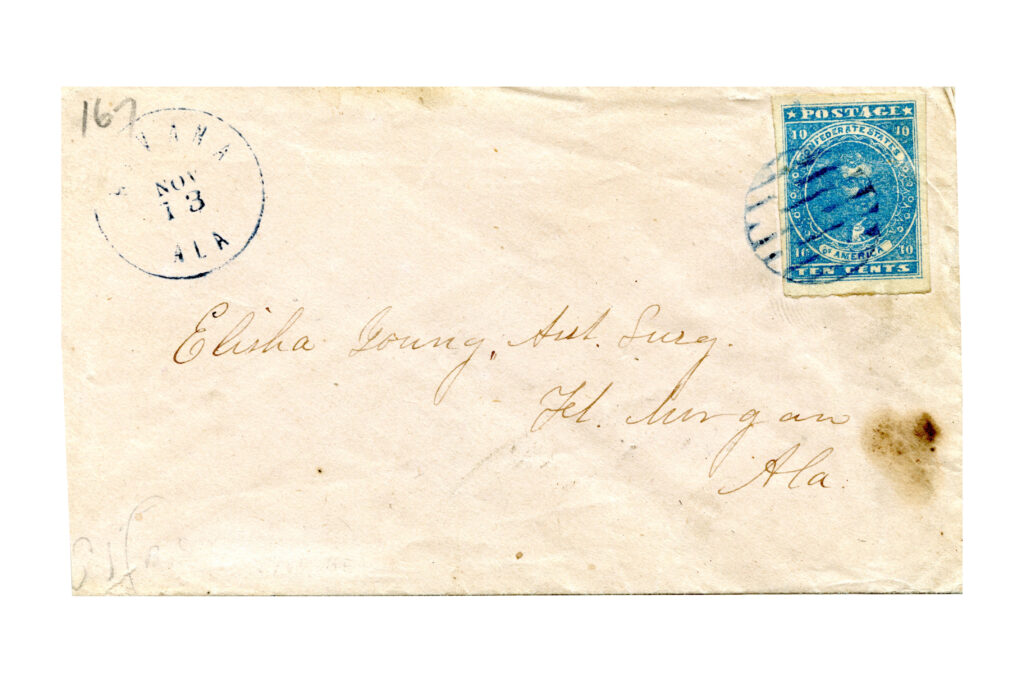 167
NOV
13
ALA
POSTAGE
10 10
CONFEDERATE STATES
OF AMERICA
10 10
TEN CENTS
Elisha Young, Ast. Surg.
Ft. Morgan
Ala.